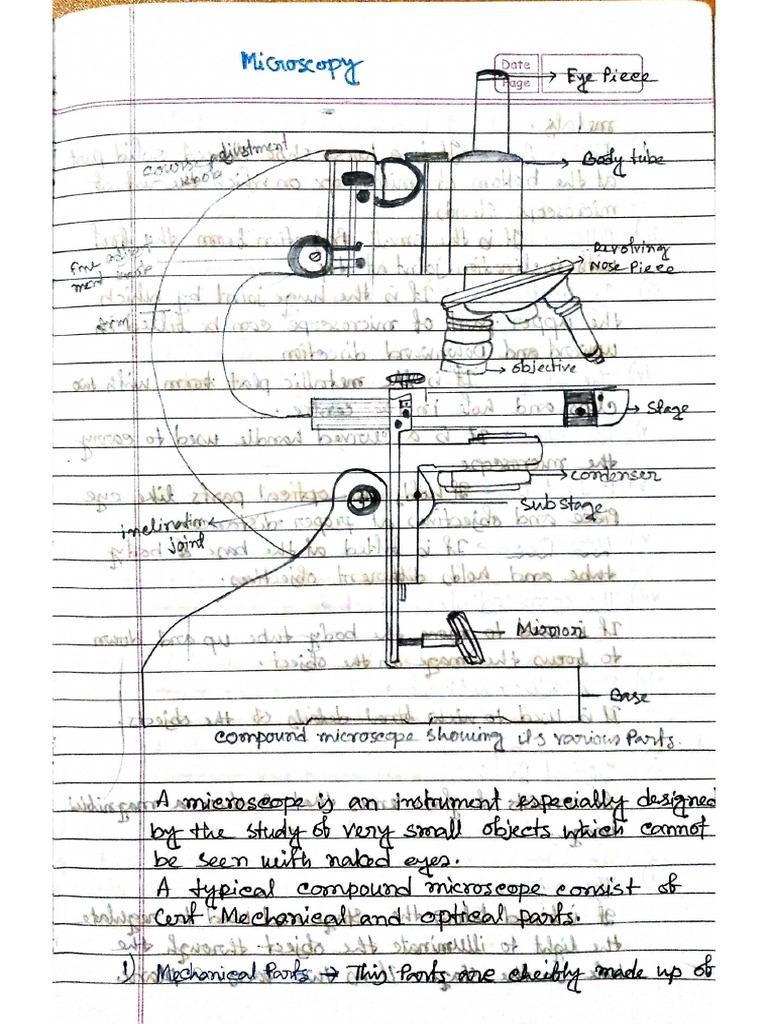 Microscopy
Date
Page
Eye Piece
coarse adjustment
knob
Body tube
Revolving
Nose Piece
Fine adjust
ment knob
Arm
objective
Stage
condenser
Substage
inclination
joint
Mirror
Base
compound microscope showing its various Parts.
A microscope is an instrument especially designed
by the study of very small objects which cannot
be seen with naked eyes.
A typical compound microscope consist of
Mechanical and optical parts.
1) Mechanical Parts → This Parts are cheibly made up of